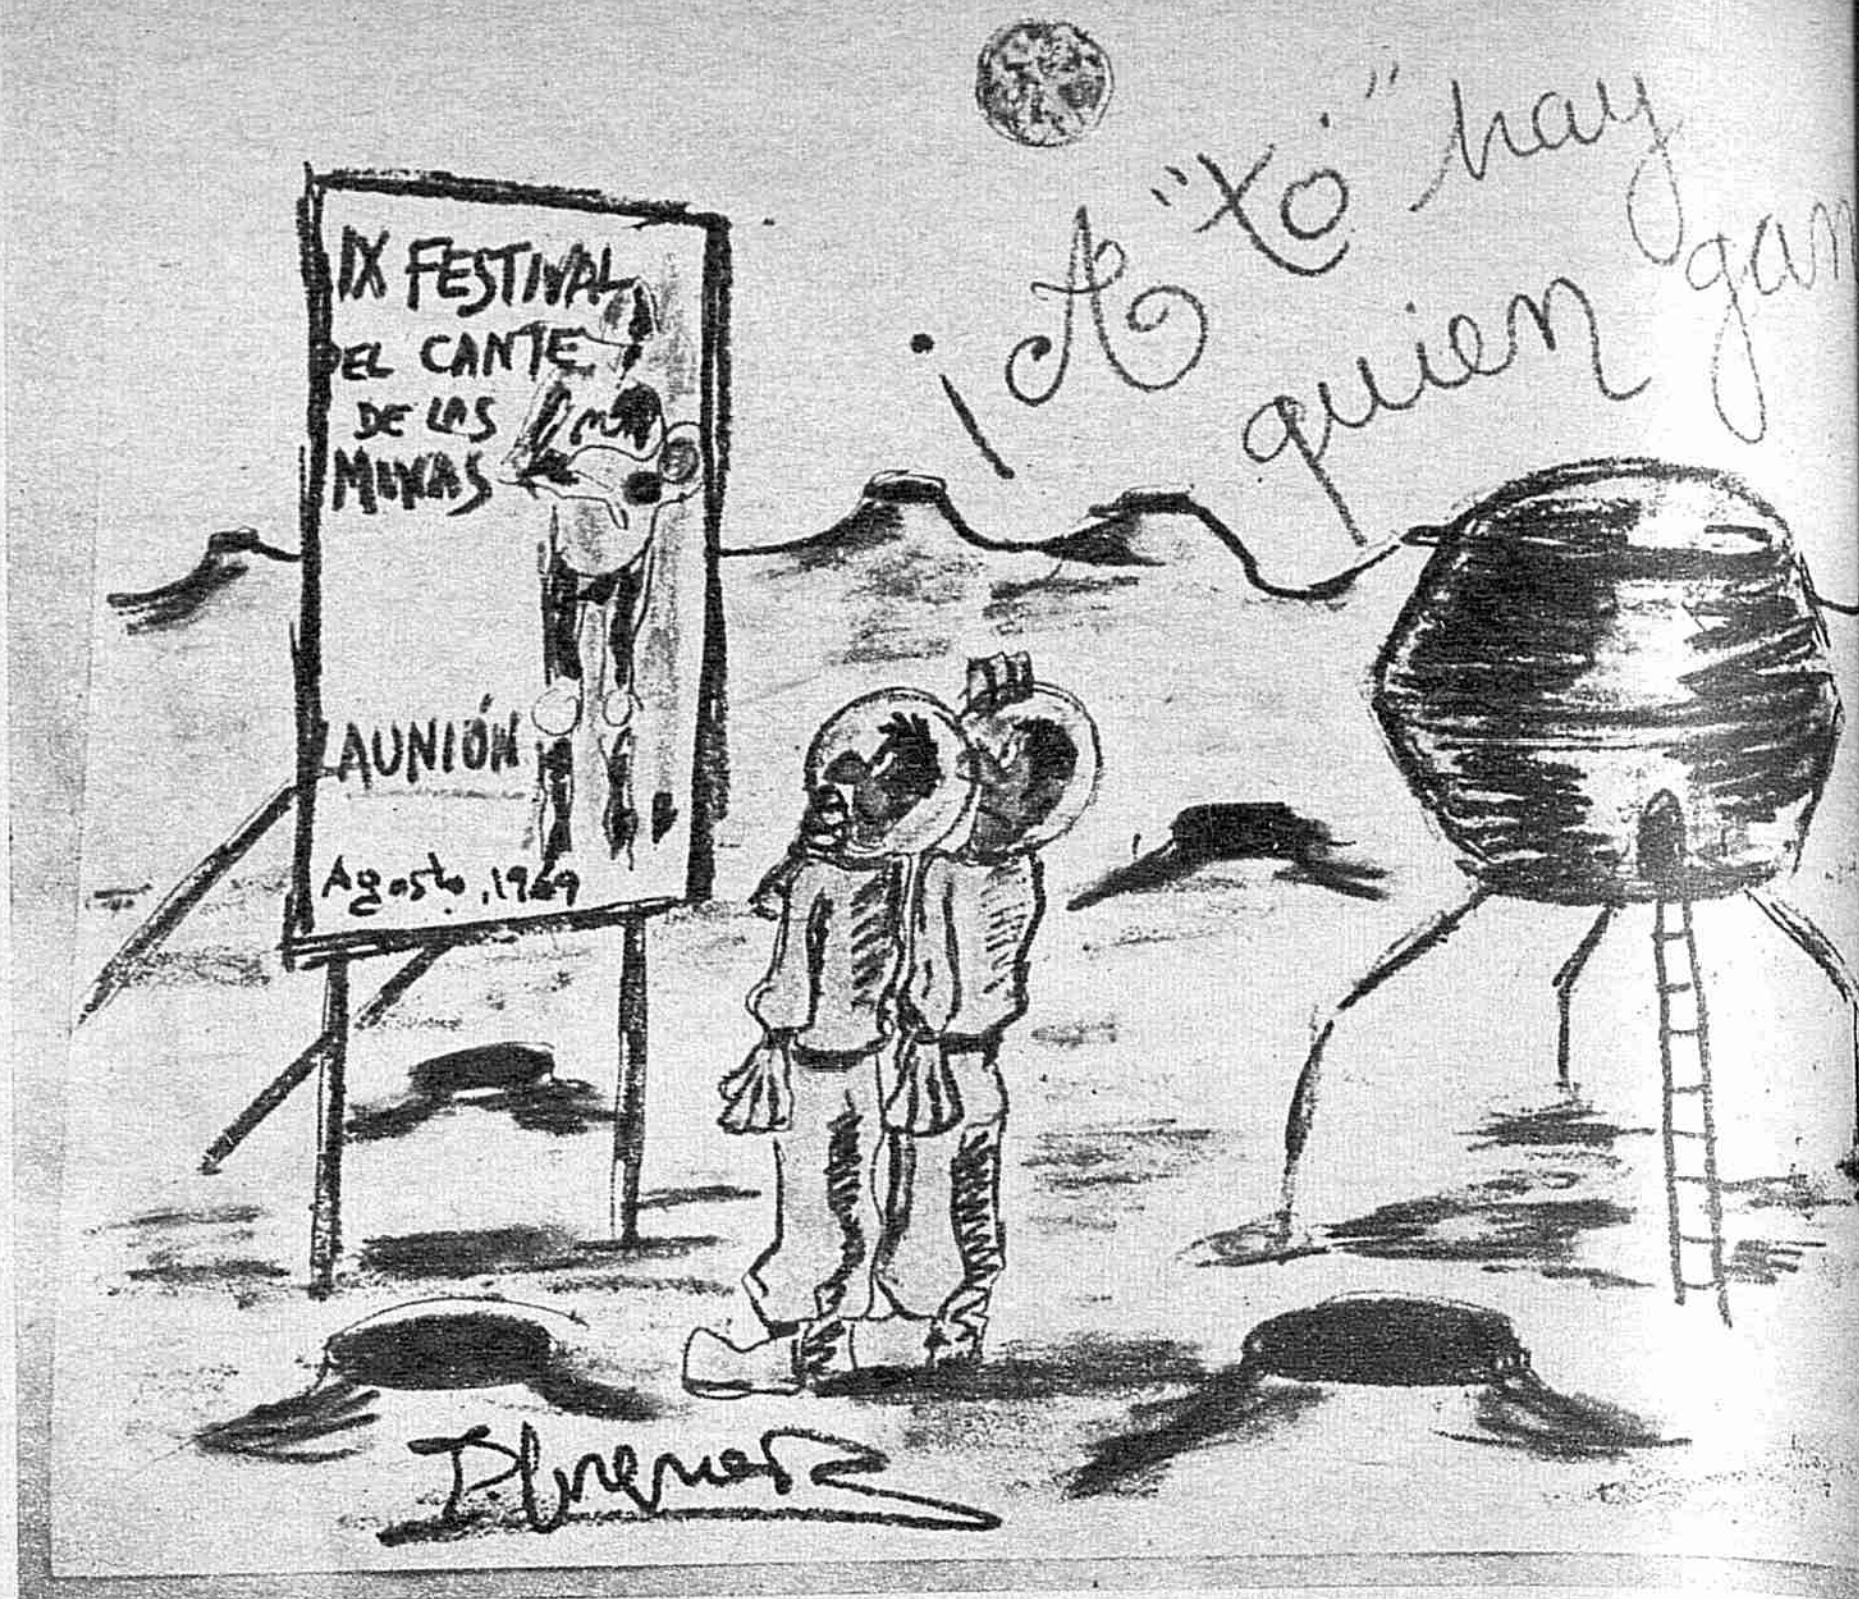 IX FESTIVAL
DEL CANTE
DE LAS
MINAS
LA UNIÓN
Agosto, 1969
¡A "tó" hay
quien gan